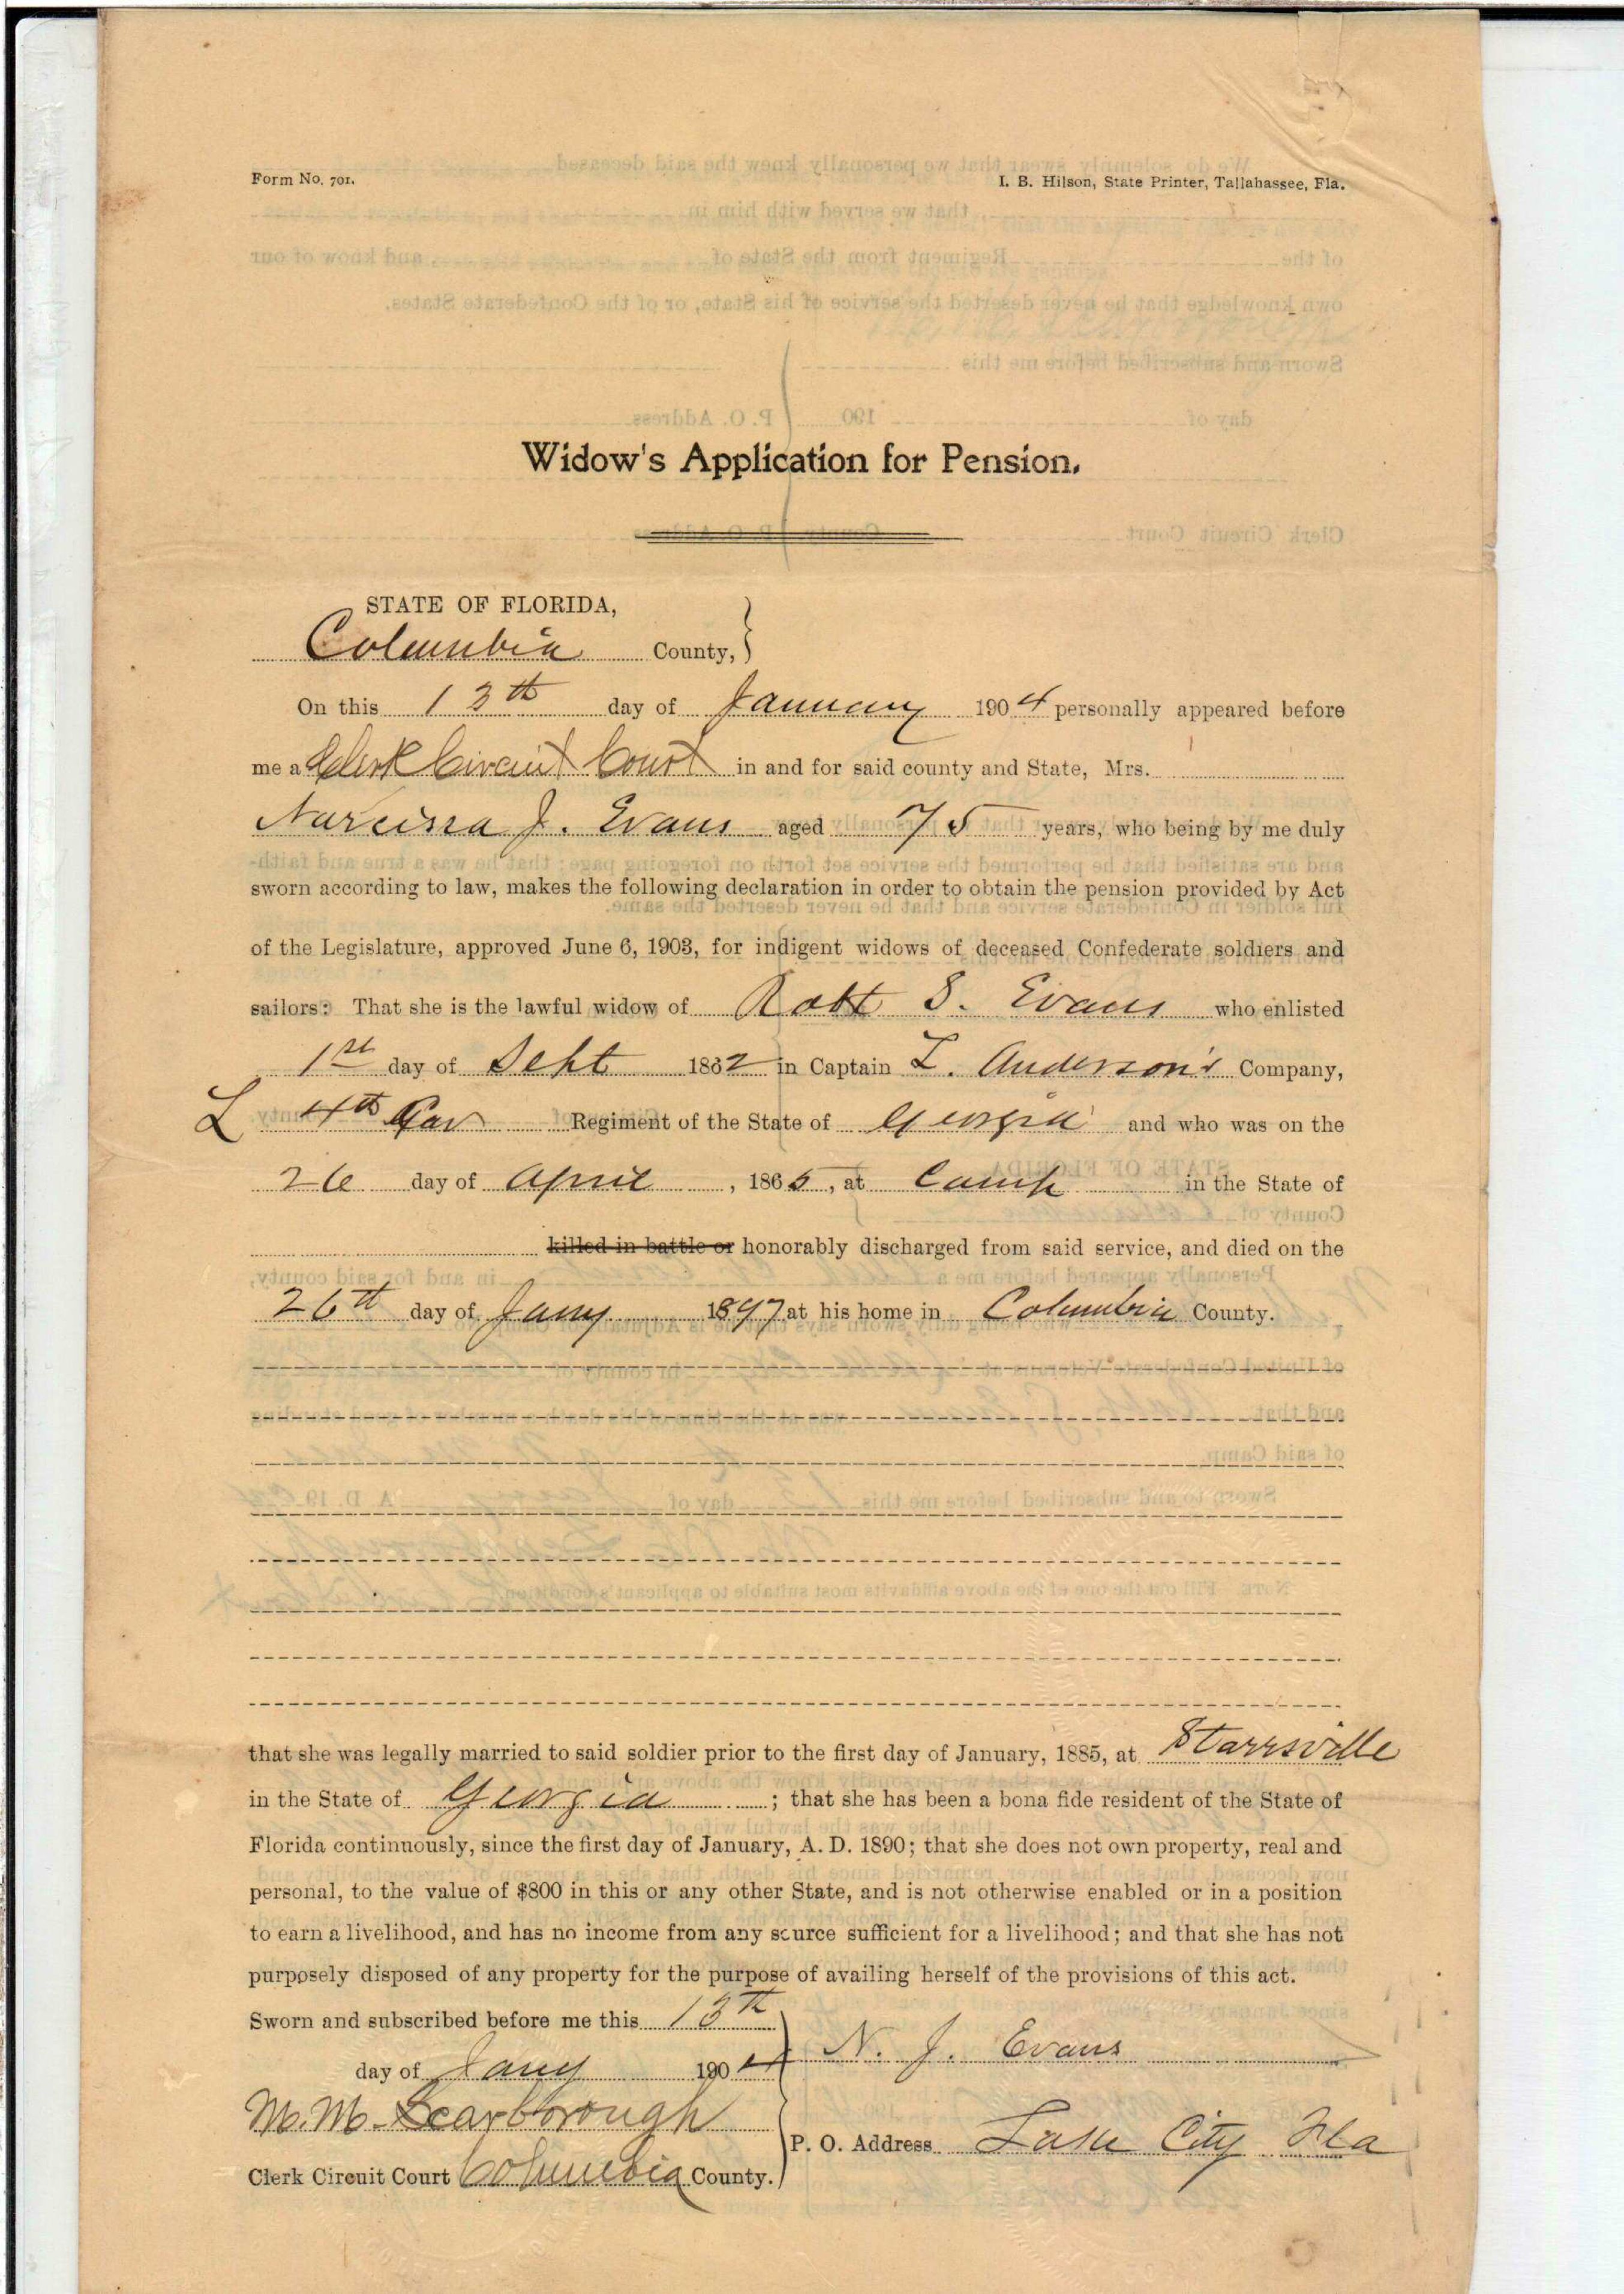 Form No. 701.
I. B. Hilson, State Printer, Tallahassee, Fla.
Widow's Application for Pension.
STATE OF FLORIDA,
Columbia County,
On this 13th day of January 1904 personally appeared before
me a Clerk Circuit Court in and for said county and State, Mrs.
Narcissa J. Evans aged 75 years, who being by me duly
sworn according to law, makes the following declaration in order to obtain the pension provided by Act
of the Legislature, approved June 6, 1903, for indigent widows of deceased Confederate soldiers and
sailors: That she is the lawful widow of Robt S. Evans who enlisted
1st day of Sept 1862 in Captain L. Anderson's Company,
L 4th Cav Regiment of the State of Georgia and who was on the
26 day of April, 1865, at Camp in the State of
killed in battle or honorably discharged from said service, and died on the
26th day of Jany 1897 at his home in Columbia County.
that she was legally married to said soldier prior to the first day of January, 1885, at Starrsville
in the State of Georgia; that she has been a bona fide resident of the State of
Florida continuously, since the first day of January, A. D. 1890; that she does not own property, real and
personal, to the value of $800 in this or any other State, and is not otherwise enabled or in a position
to earn a livelihood, and has no income from any source sufficient for a livelihood; and that she has not
purposely disposed of any property for the purpose of availing herself of the provisions of this act.
Sworn and subscribed before me this 13th
day of Jany 1904
N. J. Evans
M. M. Scarborough
P. O. Address Lake City Fla
Clerk Circuit Court Columbia County.